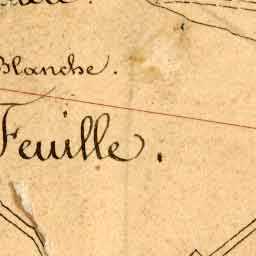 Blanche.
Feuille.